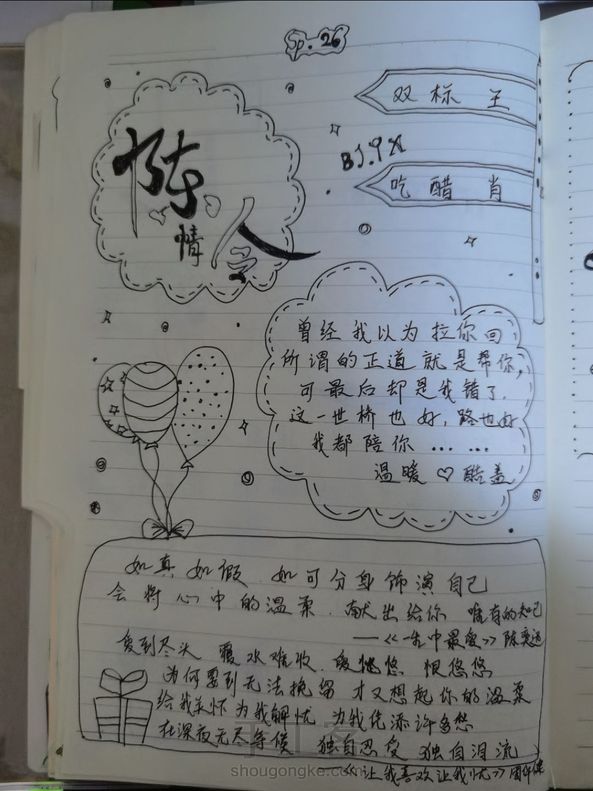 Sp. 26
陈
情
令
双标王
BJYX
吃醋肖
曾经我以为拉你回
所谓的正道就是帮你,
可最后却是我错了.
这一世桥也好,路也好
我都陪你……
温暖♡酷盖
如真如假.如可分身饰演自己
会将心中的温柔.献出给你 唯有的知己
——《一生中最爱》陈奕迅
爱到尽头 覆水难收.爱悠悠 恨悠悠
为何要到无法挽留 才又想起你的温柔
给我关怀为我解忧 为我凭添许多愁
在深夜无尽等候 独自忍受 独自泪流
《让我欢喜让我忧》周华健
shougongke.com